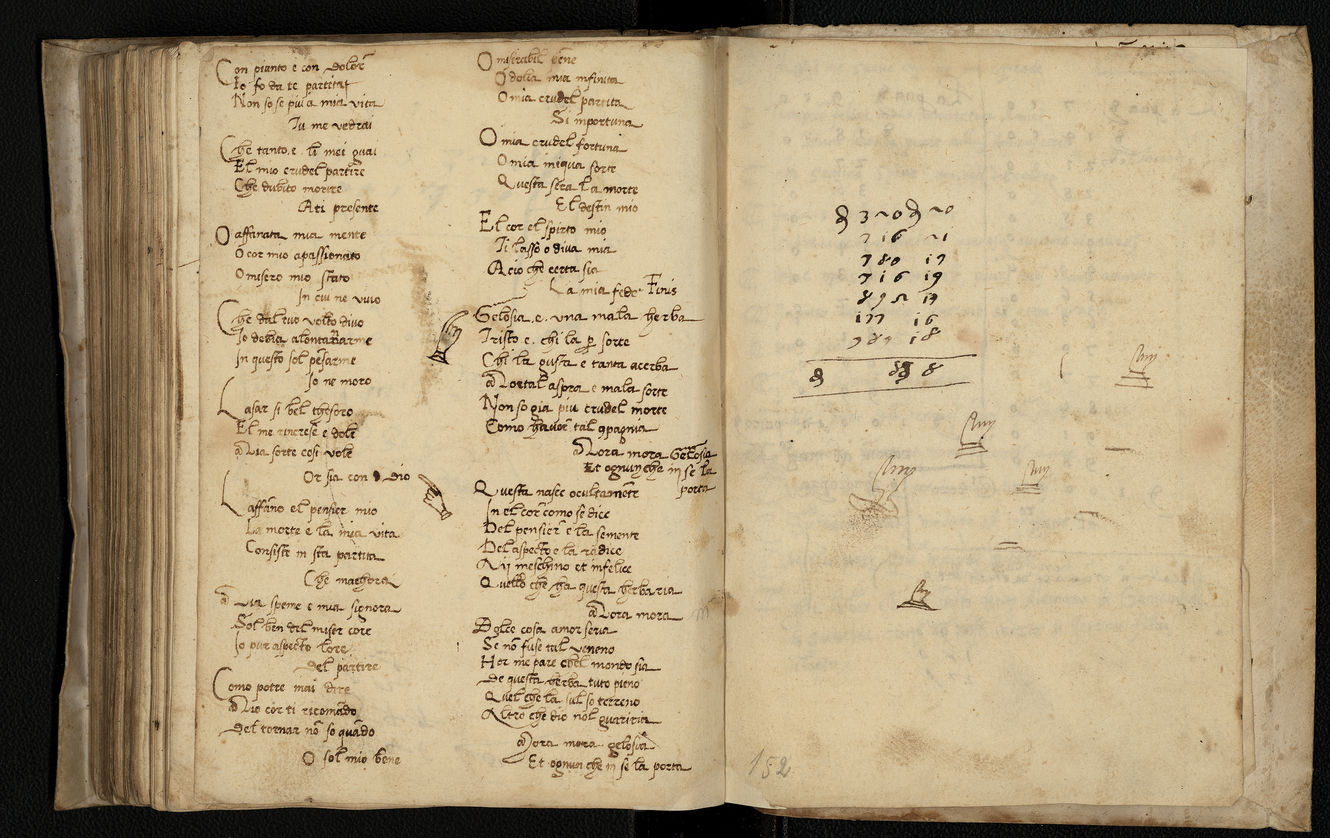 Con pianto e con dolor̃
Io fo da te partita
Non so se piu a mia vita
Tu me vedrai
Che tanto. e. li mei guai
El mio crudel partire
Che dubito morire
A ti presente
O affanata mia mente
O cor mio apassionato
O misero mio stato
In cui ne vivo
Che dal tuo volto divo
Io debia alontanarme
In questo sol pẽsarme
Io ne moro
Lasar si bel thesoro
El me rincresẽ e dole
Mia sorte cosi vole
Or sia con Dio
Laffãno el pensier mio
La morte e la mia vita
Consiste in sta partita
Che machora
Mia speme e mia signora
Sol ben del miser core
Io pur aspecto lore
Del partire
Como potre mai dire
Mio cor ti ricomãdo
Del tornar nõ so quãdo
O sol mio bene
O mirabil bene
O dolia mia infinita
O mia crudel partita
Si inportuna
O mia crudel fortuna
O mia iniqua sorte
Questa sera la morte
El destin mio
El cor el spirto mio
Ti lasso o diva mia
Acio che certa sia
La mia fede Finis
Gelosia. e. una mala herba
Tristo e. chi la p sorte
Chi la gusta e tanta acerba
Mortal aspra e mala sorte
Non so gia piu crudel morte
Como haver tal cpagnia
Mora mora Gelosia
Et ognun che in se la
porta
Questa nasce ocultamẽte
In el cor como se dice
Del pensier e la semente
Del aspecto e la radice
Aij meschino et infelice
Quello che ha questa herba ria
Mora mora
Dolce cosa amor seria
Se nõ fuse tal veneno
Hor me pare chel mondo sia
De questa herba tuto pieno
Quel che la sul so terreno
Altro che dio nol guariria
Mora mora gelosia
Et ognun che in se la porta
716 21
780 17
716 19
177 16
152